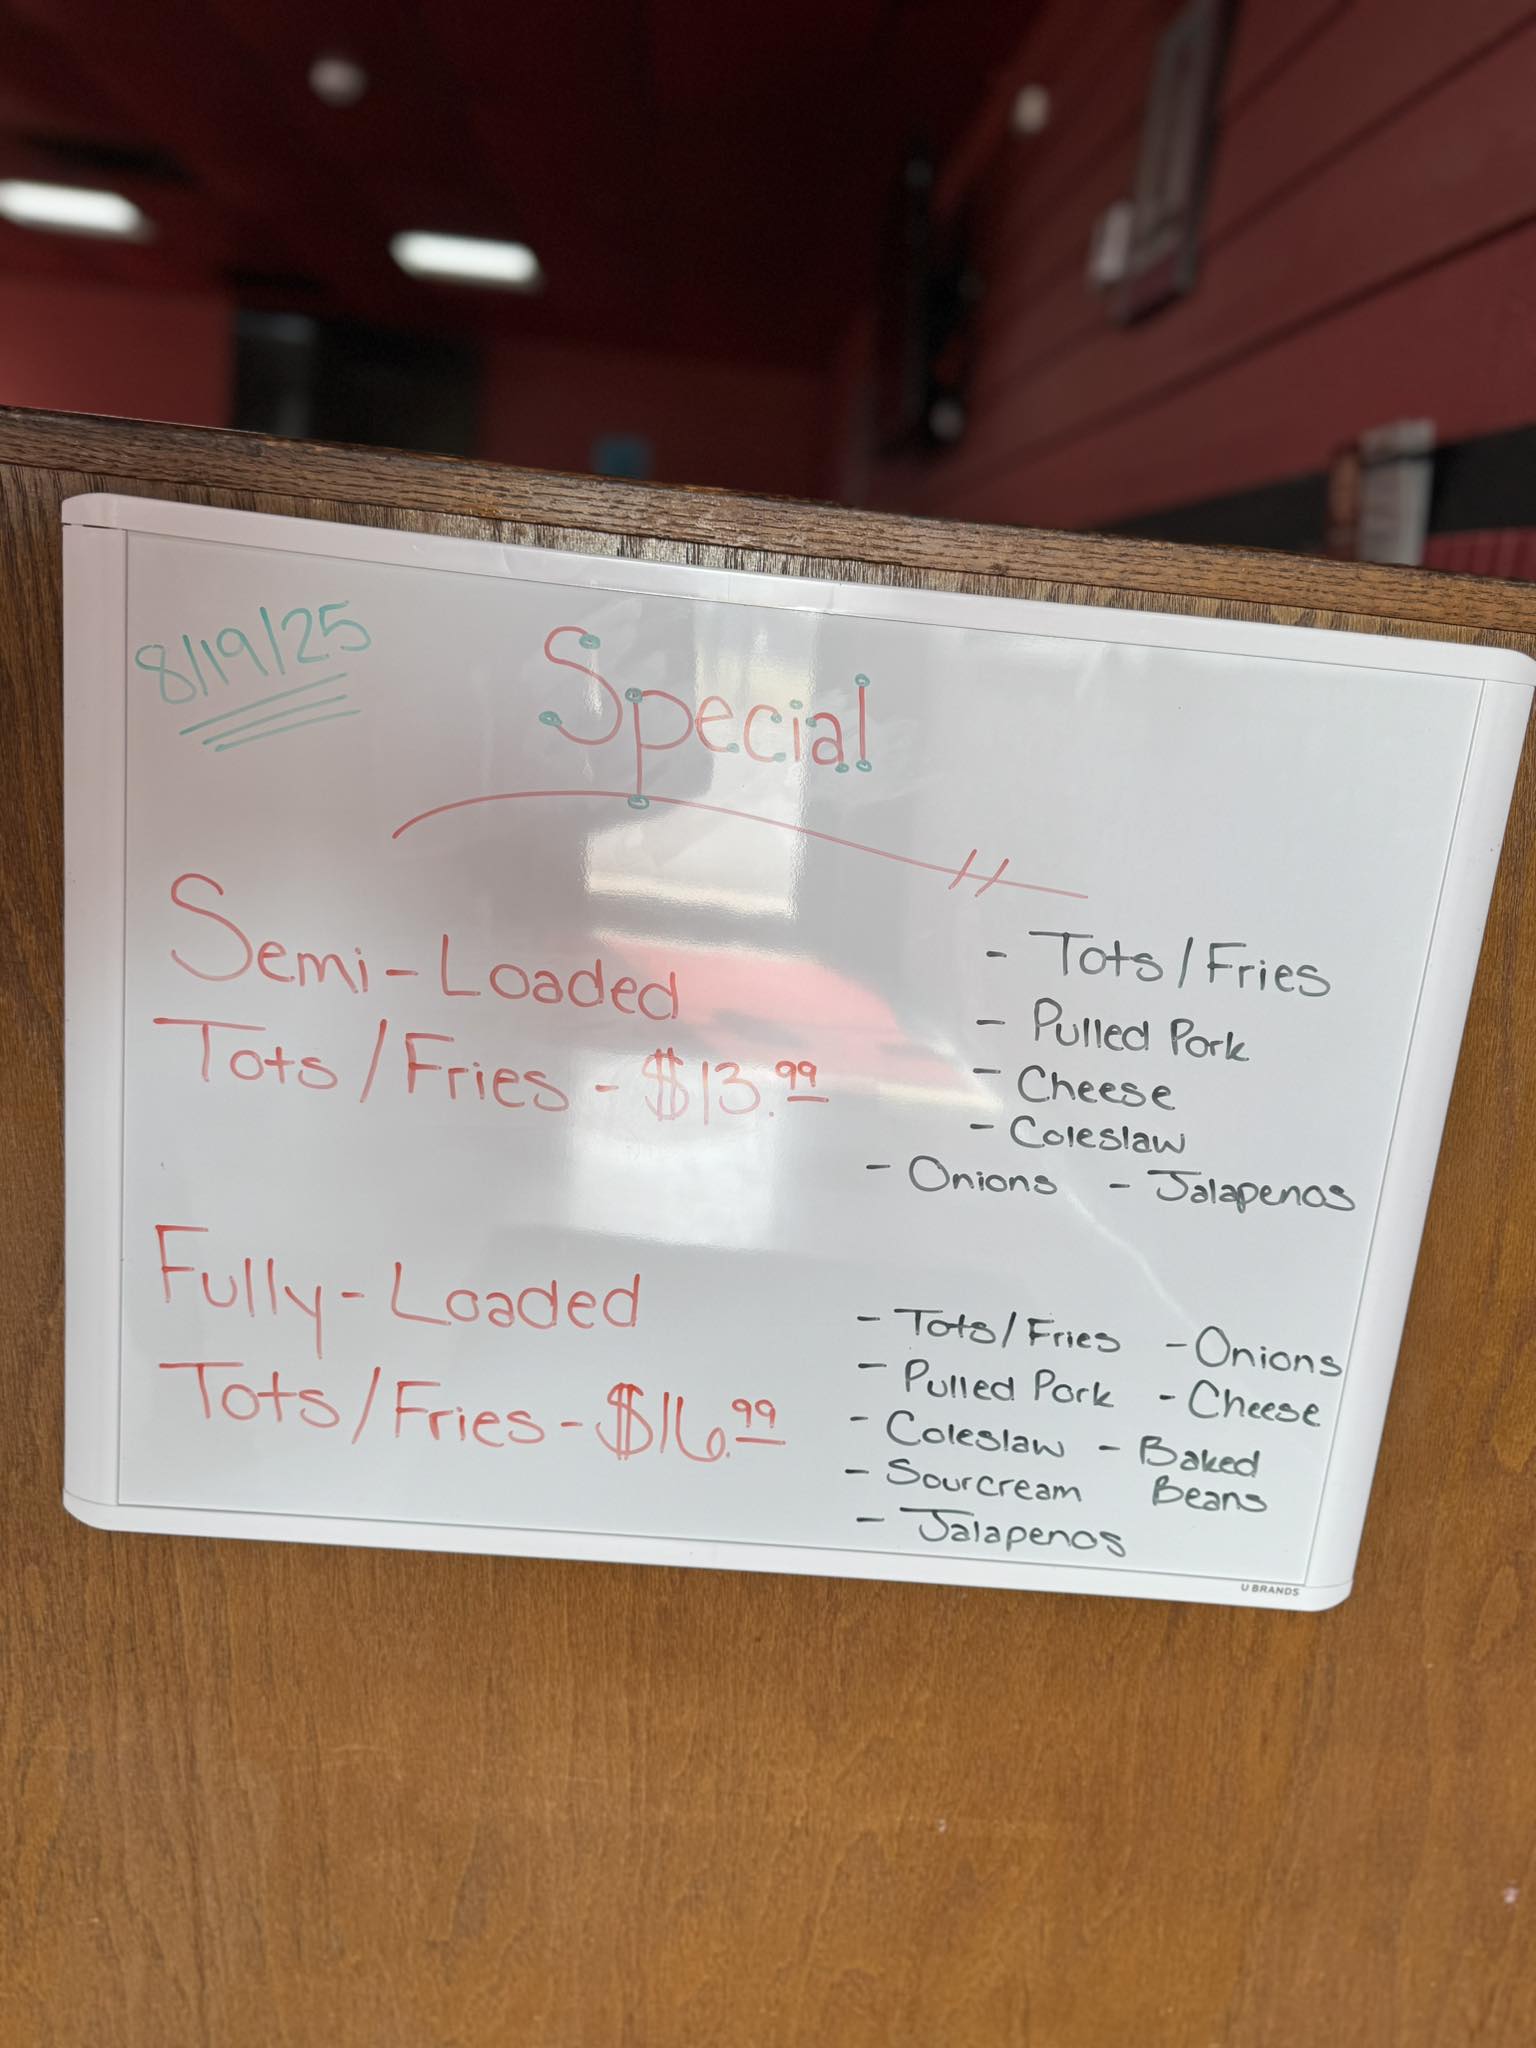 8/19/25
Special
Semi-Loaded
Tots/Fries - $13.99
- Tots/Fries
- Pulled Pork
- Cheese
- Coleslaw
- Onions - Jalapenos
Fully-Loaded
Tots/Fries - $16.99
- Tots/Fries - Onions
- Pulled Pork - Cheese
- Coleslaw - Baked
- Sourcream Beans
- Jalapenos
U BRANDS